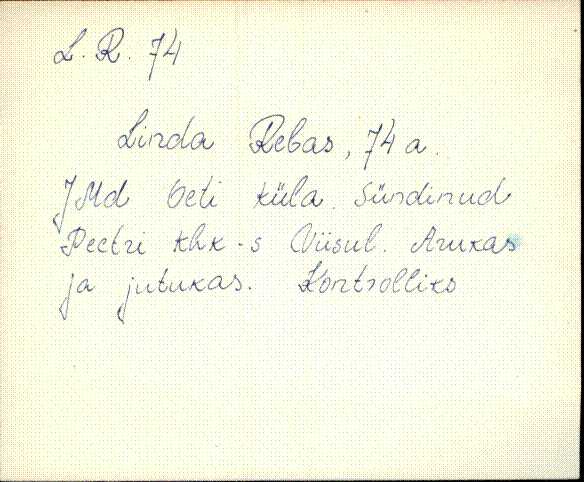 L. R. 74
Linda Rebas, 74 a.
JMd Oeti küla. Sündinud
Peetri khk-s Viisul. Arukas
ja jutukas. Kontrolliks